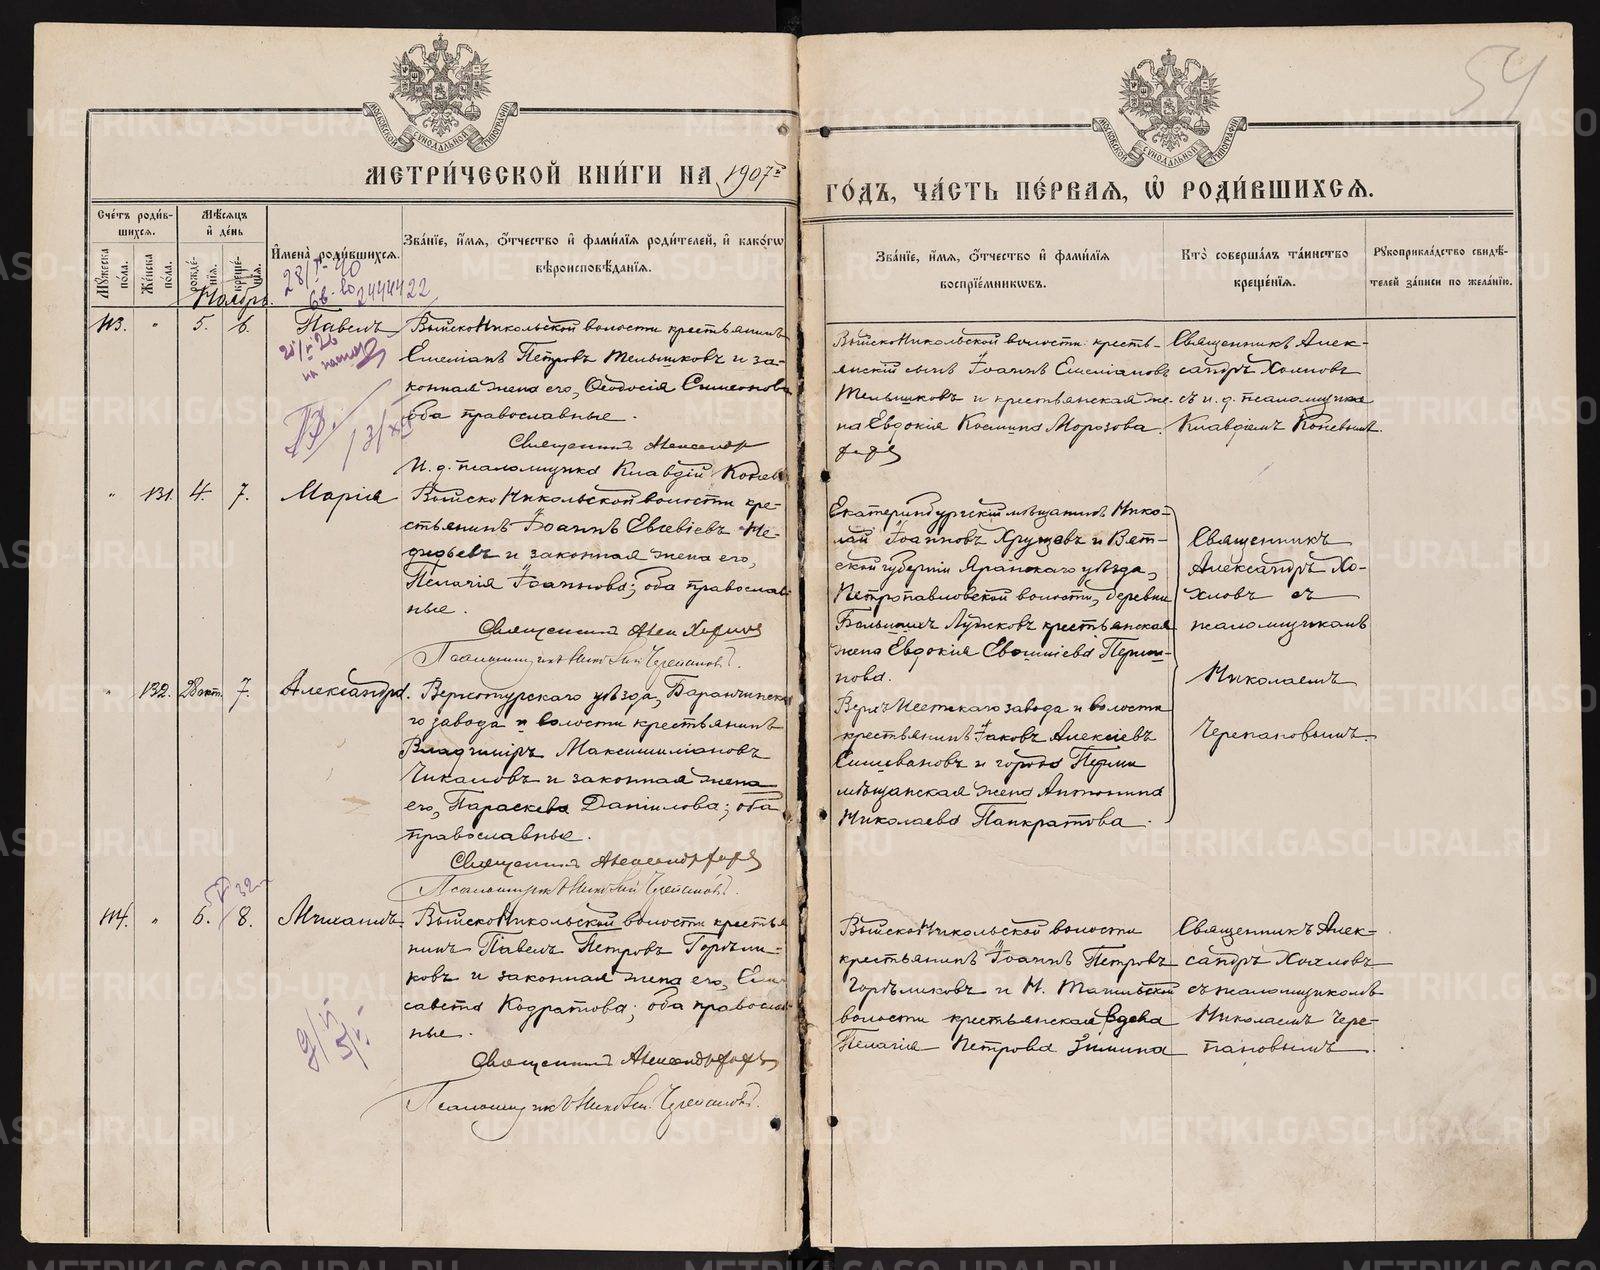 54
МОСКОВСКОЙ СѴНОДАЛЬНОЙ ТИПОГРАФІИ
МОСКОВСКОЙ СѴНОДАЛЬНОЙ ТИПОГРАФІИ
МЕТРИ́ЧЕСКОЙ КНИ́ГИ НА 1907й
ГО́ДЪ, ЧА́СТЬ ПЕ́РВАЯ, Ѡ҆ РОДИ́ВШИХСЯ.
Сче́тъ роди́в-
шихся.
Мѣ́сяцъ
и҆ де́нь
Мꙋ́жеска по́ла.
Же́нска по́ла.
рожде́-
нїя.
креще́-
нїя.
И҆мена̀ роди́вшихся.
Зва́нїе, и҆́мя, ѻ҆́тчество и҆ фами́лїя роди́телей, и҆ како́гѡ
вѣроисповѣ́данїя.
Зва́нїе, и҆́мя, ѻ҆́тчество и҆ фами́лїя
воспрїе́мникѡвъ.
Кто̀ соверша́лъ та́инство
креще́нїя.
Рꙋкоприкла́дство свидѣ́-
телей за́писи по жела́нїю.
Ноябрь.
2444422
113. " 5. 6. Павелъ
Выйско Никольской волости крестьянинъ
Емеліанъ Петровъ Мельшковъ и за-
конная жена его, Ѳеодосія Симеонова
оба православные.
Священникъ Александр
И. д. псаломщика Клавдій Конев
Выйско Никольской волости кресть-
янскій сынъ Іоаннъ Емеліановъ
Мельшковъ и крестьянская же-
на Евдокія Космина Морозова.
Священникъ Алек-
сандръ Хохловъ
съ и. д. псаломщика
Клавдіемъ Коневымъ.
" 131. 4. 7. Марія
Выйско Никольской волости кре-
стьянинъ Іоаннъ Евсевіевъ Ме-
фодьевъ и законная жена его,
Пелагія Іоаннова; оба православ-
ные.
Священникъ Алек Хохлов
Псаломщикъ Николай Черепановъ.
Екатеринбургскій мѣщанинъ Нико-
лай Іоанновъ Хрущевъ и Вят-
ской губерніи Яранскаго уѣзда,
Петропавловской волости, деревни
Большихъ Лужковъ крестьянская
жена Евдокія
нова.
Священникъ
Александръ Хо-
хловъ съ
псаломщикомъ
Николаемъ
Черепановымъ.
" 132. 28 окт. 7. Александра.
Верхотурскаго уѣзда, Баранчинска-
го завода и волости крестьянинъ
Владиміръ Максимиліановъ
Чикаловъ и законная жена
его, Параскева Даніилова; оба
православные.
Священникъ Александр
Псаломщикъ Николай Черепановъ.
Верхъ Исетскаго завода и волости
крестьянинъ Іаковъ Алексіевъ
Селивановъ и города Перми
мѣщанская жена Антонина
Николаева Панкратова.
114. " 6. 8. Михаилъ.
Выйско Никольской волости крестья-
нинъ Павелъ Петровъ Горѣли-
ковъ и законная жена его, Ели-
савета Кодратова; оба православ-
ные.
Священникъ Александр
Псаломщикъ Николай Черепановъ.
Выйско Никольской волости
крестьянинъ Іоаннъ Петровъ
Горѣликовъ и Н. Тагильской
волости крестьянская вдова
Пелагія Петрова Зимина
Священникъ Алек-
сандръ Хохловъ
съ псаломщикомъ
Николаемъ Чере-
пановымъ.
METRIKI.GASO-URAL.RU